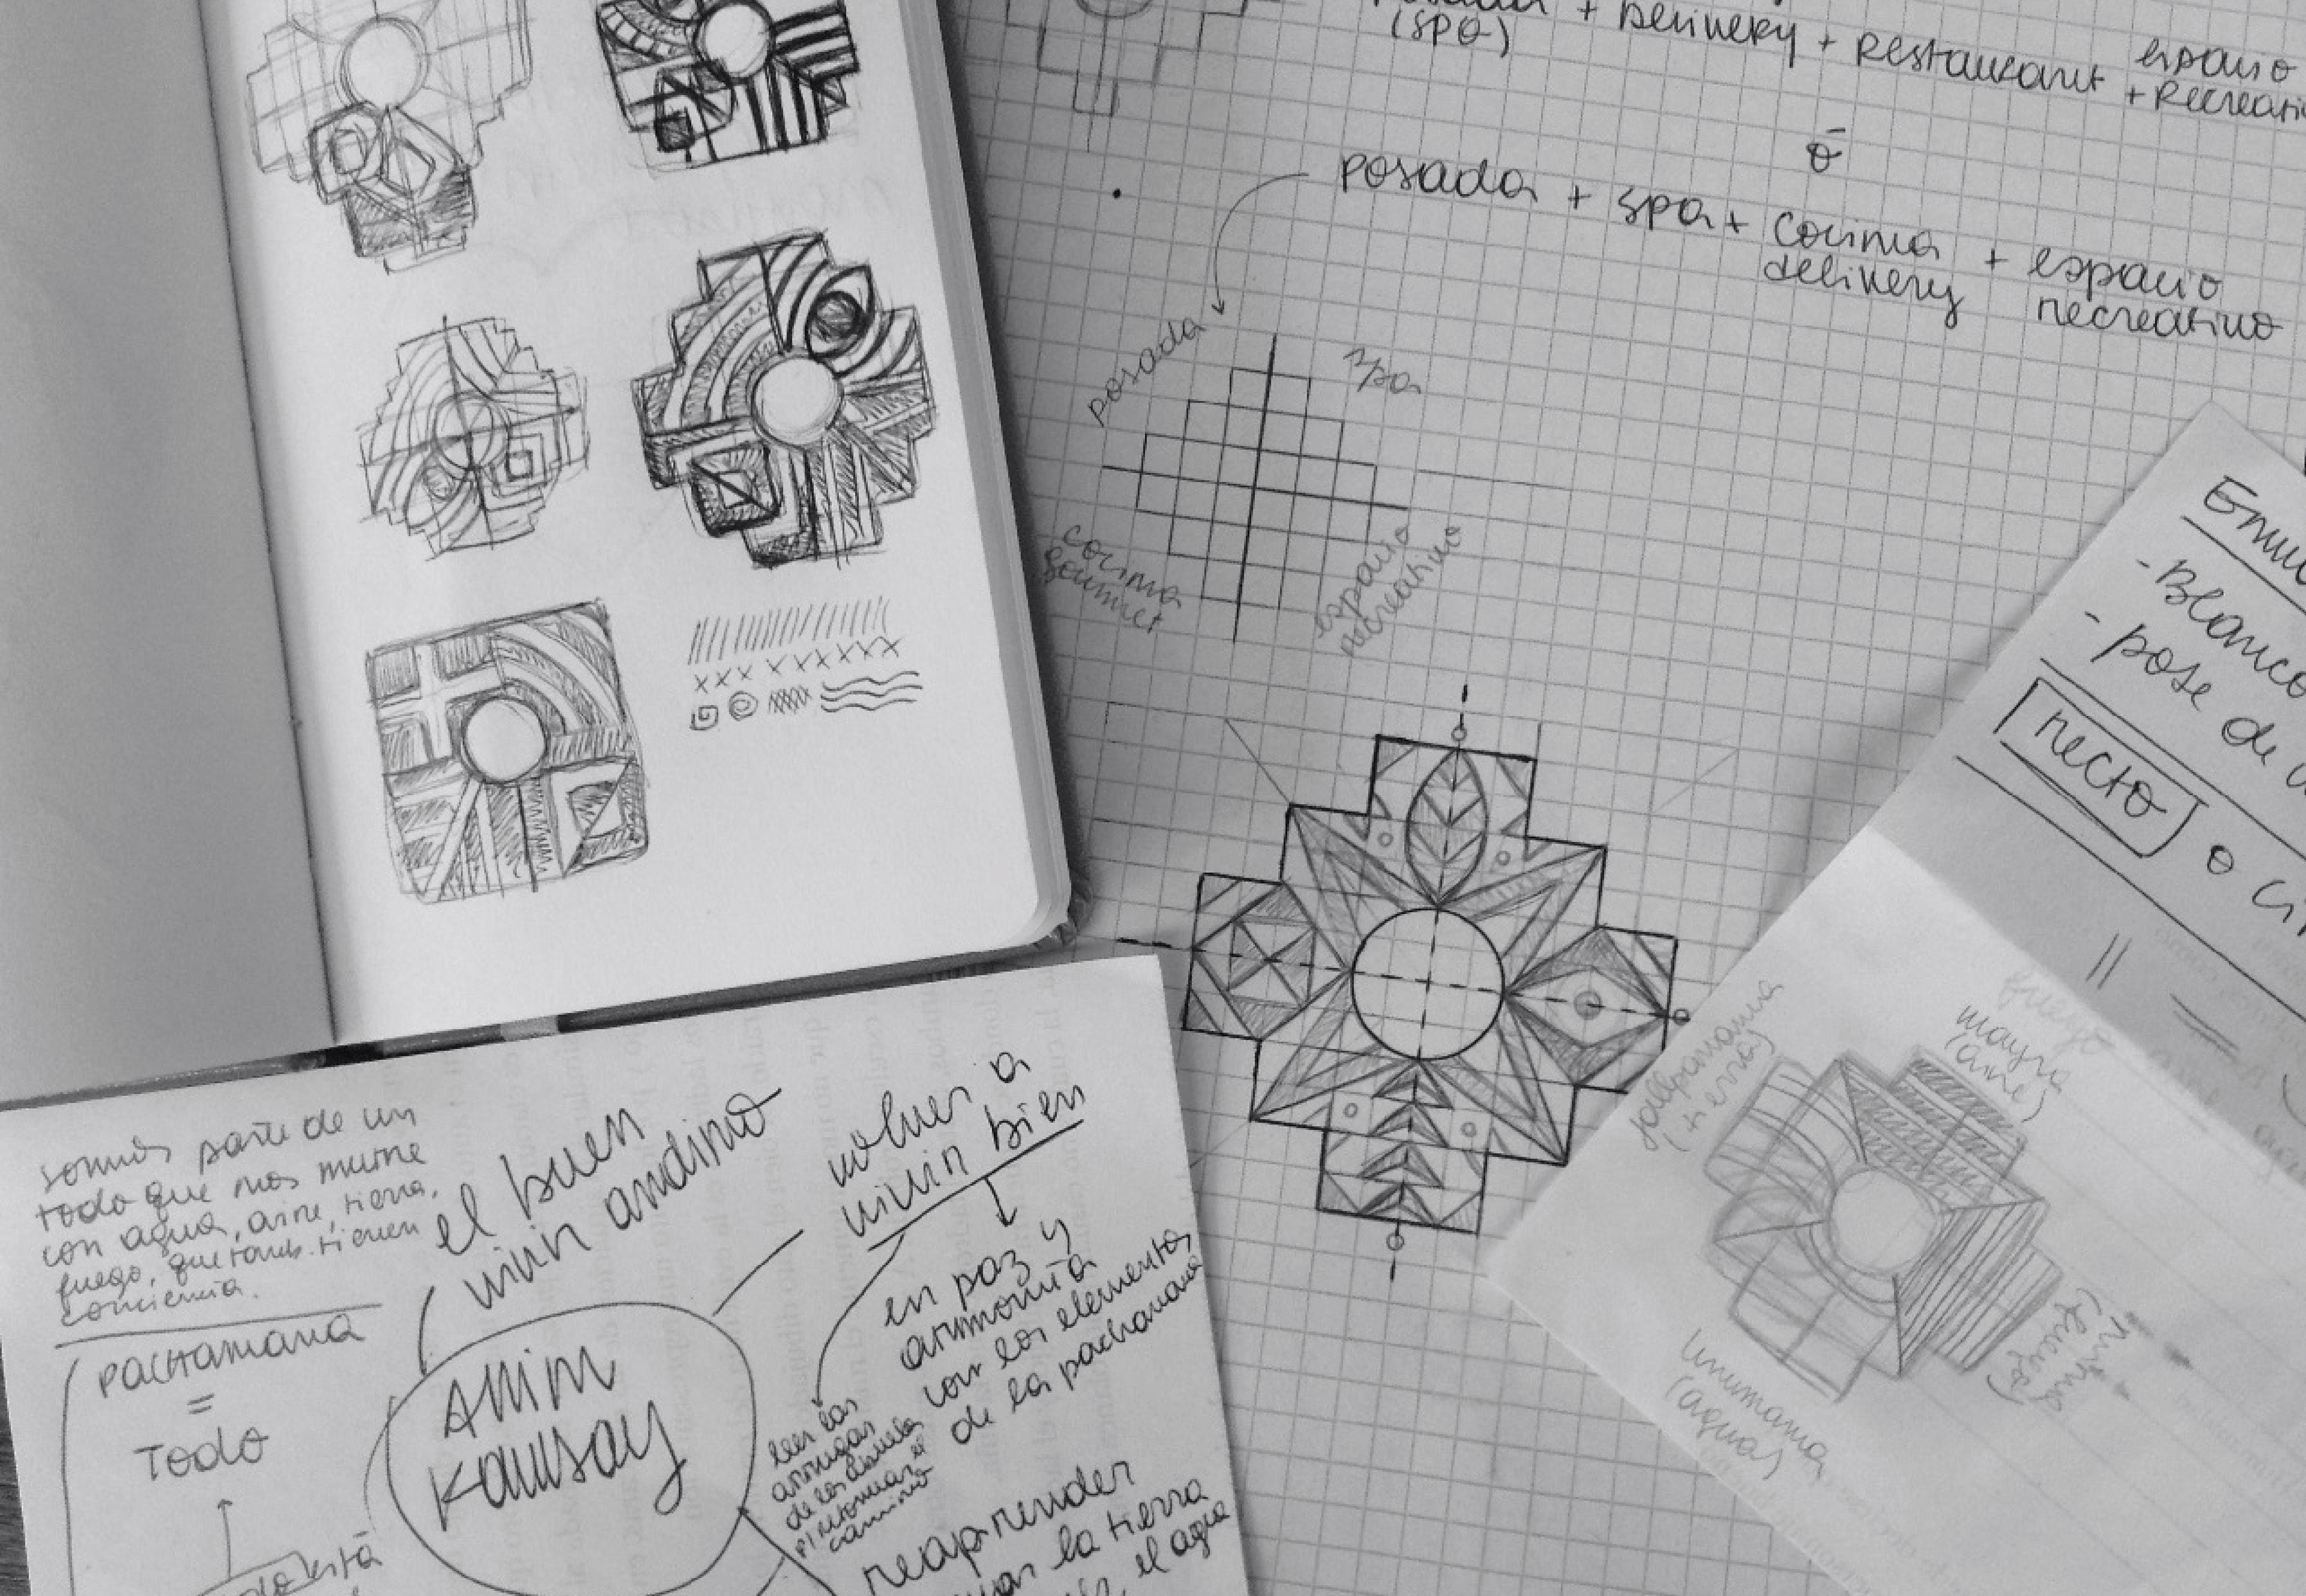 (spa)
+ Delivery + Restaurant
espacio
+ Recreati
ó
posada + spa + cocina
delivery
+ espacio
recreativo
posada
spa
cocina
gourmet
espacio
recreativo
- Blanco
- pose de
recto
o
=
fuego
jallpamama
(tierra)
wayra
(aire)
(fuego)
Unumama
(agua)
somos parte de un
todo que nos nutre
con agua, aire, tierra,
fuego, que tamb. tienen
conciencia.
PACHAMAMA
=
TODO
el buen
vivir andino
volver a
vivir bien
en paz y
armonía
con los elementos
de la pachamama
Allin
Kawsay
leer las
arrugas
de los abuelos
p/ retomar el
camino
reaprender
la tierra
el agua
está